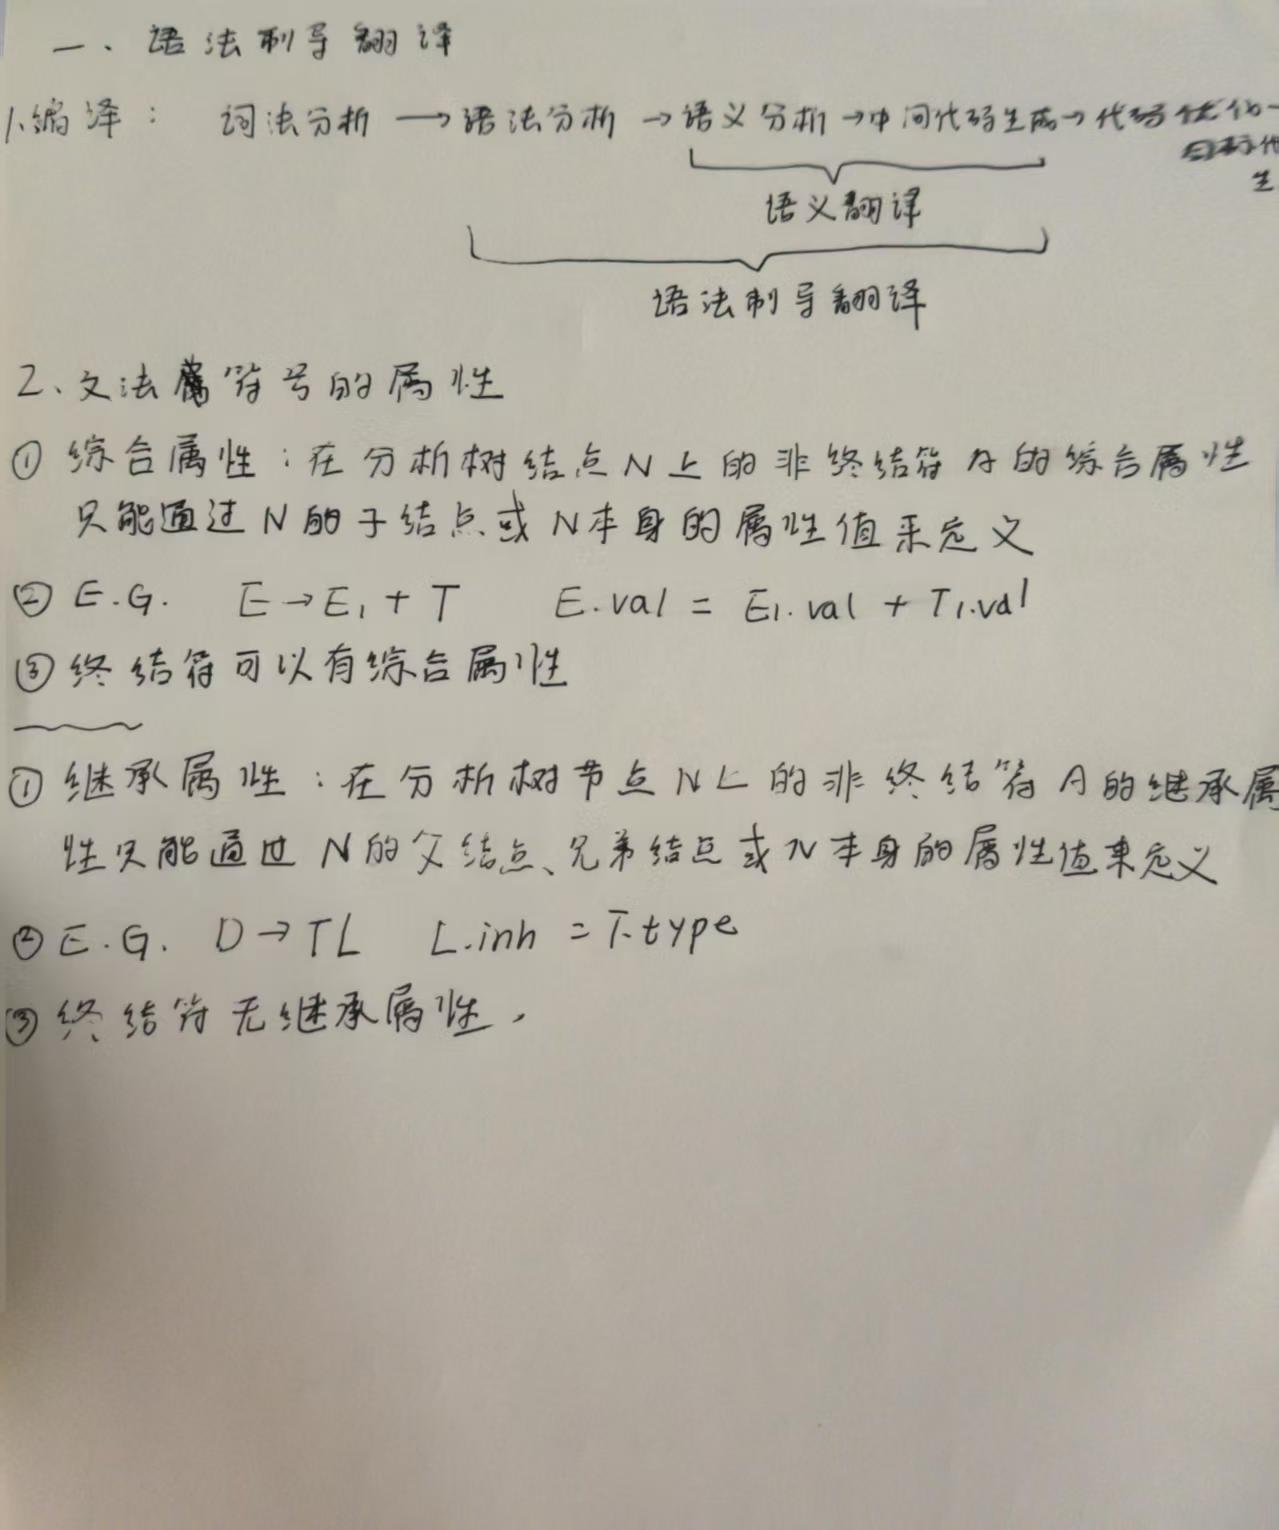 一、语法制导翻译
1.编译： 词法分析 → 语法分析 → 语义分析 → 中间代码生成 → 代码优化 →
目标代
生
语义翻译
语法制导翻译
2、文法符号的属性
① 综合属性：在分析树结点N上的非终结符A的综合属性
只能通过N的子结点或N本身的属性值来定义
② E.G. E → E₁ + T E.val = E₁.val + T₁.val
③ 终结符可以有综合属性
① 继承属性：在分析树节点N上的非终结符A的继承属
性只能通过N的父结点、兄弟结点或N本身的属性值来定义
② E.G. D → TL L.inh = T.type
③ 终结符无继承属性，